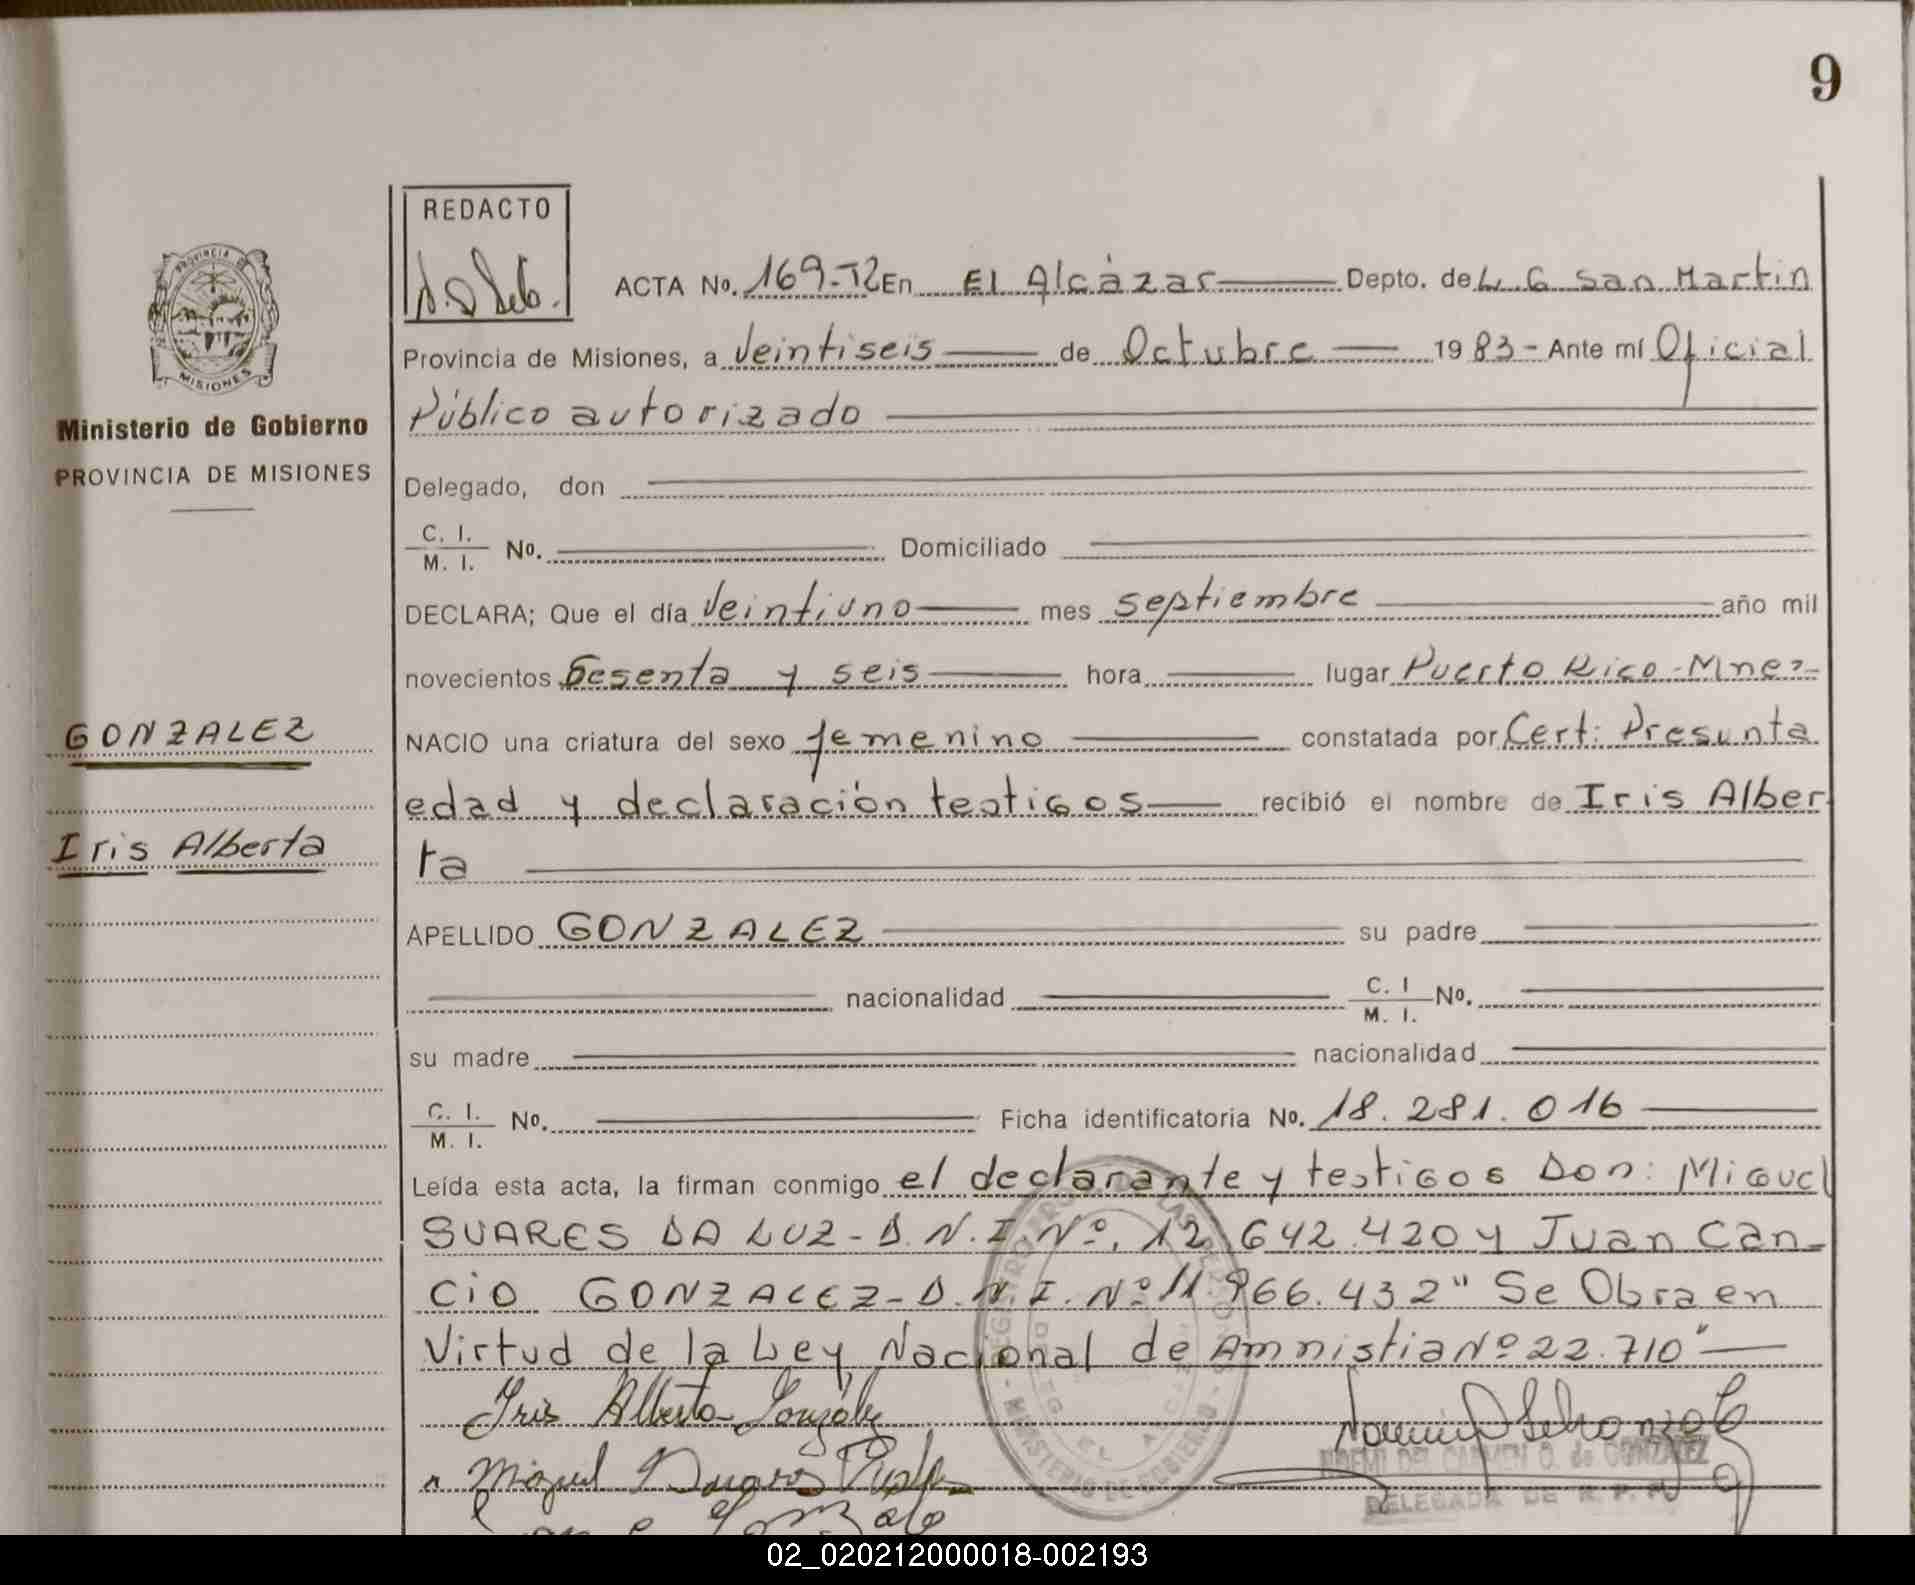 9
REDACTO
PROVINCIA DE
MISIONES
Ministerio de Gobierno
PROVINCIA DE MISIONES
GONZALEZ
Iris Alberta
ACTA No. 169-T2 En El Alcázar Depto. de L. G San Martin
Provincia de Misiones, a Veintiseis de Octubre 1983- Ante mí Oficial
Público autorizado
Delegado, don
C. I.
M. I. No. Domiciliado
DECLARA; Que el día Veintiuno mes septiembre año mil
novecientos Sesenta y seis hora lugar Puerto Rico-Mnes-
NACIO una criatura del sexo femenino constatada por Cert: Presunta
edad y declaración testigos recibió el nombre de Iris Alber
ta
APELLIDO GONZALEZ su padre
nacionalidad C. I M. I. No.
su madre nacionalidad
C. I.
M. I. No. Ficha identificatoria No. 18.281.016
Leída esta acta, la firman conmigo el declarante y testigos Don: Miguel
SUARES DA LUZ-D.N.I Nº. 12.642.420 y Juan Can-
cio GONZALEZ-D.N.I. Nº 11.966.432" Se Obra en
Virtud de la Ley Nacional de Amnistia Nº 22.710"
Iris Alberta González
Miguel
NOEMI DEL CARMEN O. de GONZALEZ
DELEGADA DE R. P. P.
MINISTERIO DE GOBIERNO
EL ALCAZAR
02_020212000018-002193